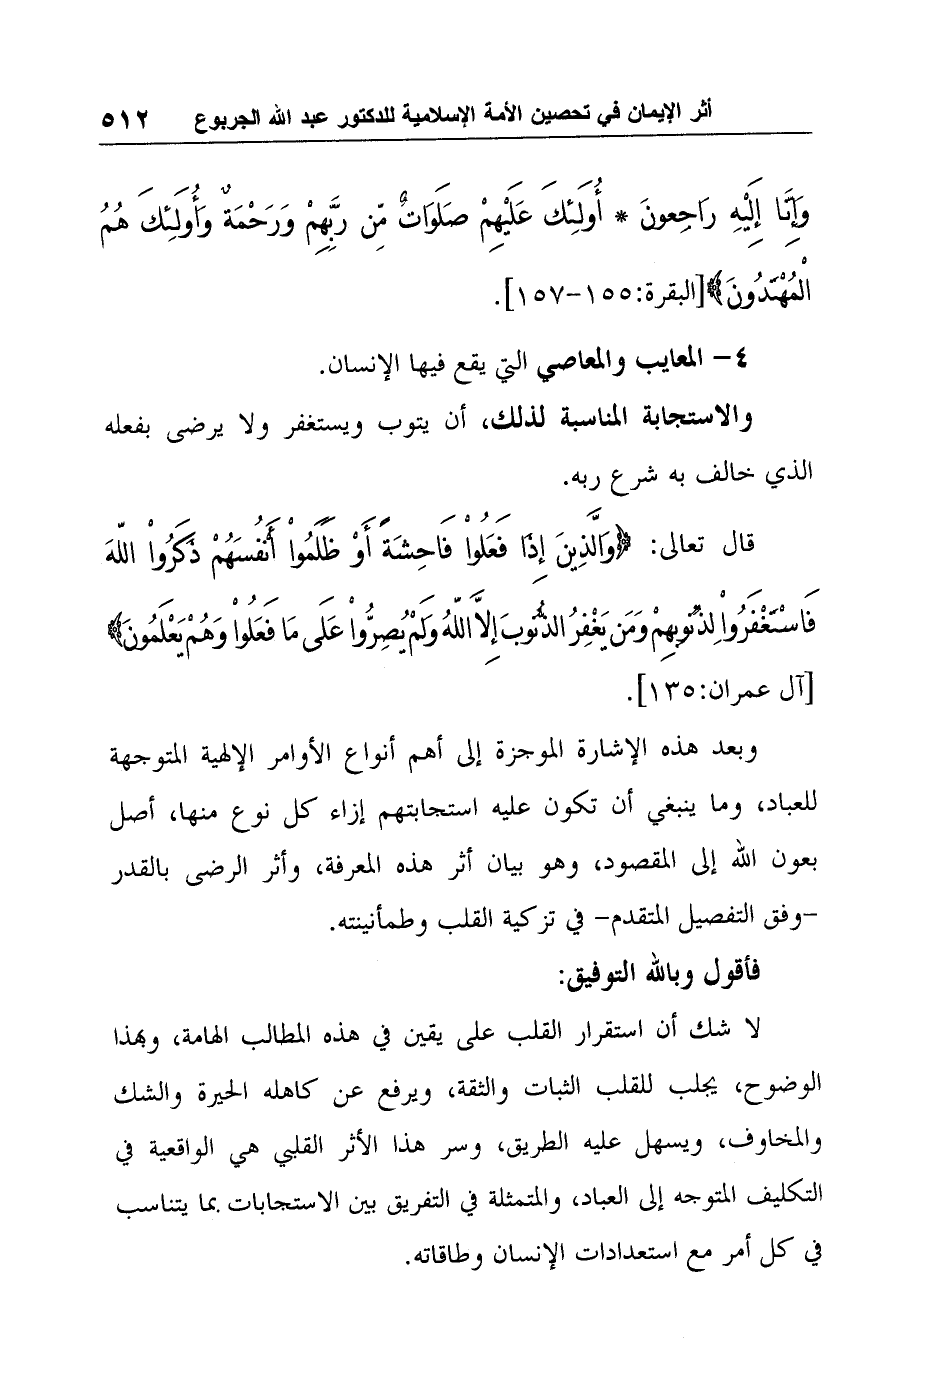 أثر الإيمان في تحصين الأمة الإسلامية للدكتور عبد الله الجربوع ٥١٢
وَإِنَّا إِلَيْهِ رَاجِعونَ * أُولَئِكَ عَلَيْهِمْ صَلَوَاتٌ مِّن رَبِّهِمْ وَرَحْمَةٌ وَأُولَئِكَ هُمُ
الْمُهْتَدُونَ﴾[البقرة:١٥٥-١٥٧].
٤- المعايب والمعاصي التي يقع فيها الإنسان.
والاستجابة المناسبة لذلك، أن يتوب ويستغفر ولا يرضى بفعله
الذي خالف به شرع ربه.
قال تعالى: ﴿وَالَّذِينَ إِذَا فَعَلُواْ فَاحِشَةً أَوْ ظَلَمُواْ أَنْفُسَهُمْ ذَكَرُواْ اللّهَ
فَاسْتَغْفَرُواْ لِذُنُوبِهِمْ وَمَن يَغْفِرُ الذُّنُوبَ إِلاَّ اللّهُ وَلَمْ يُصِرُّواْ عَلَى مَا فَعَلُواْ وَهُمْ يَعْلَمُونَ﴾
[آل عمران:١٣٥].
وبعد هذه الإشارة الموجزة إلى أهم أنواع الأوامر الإلهية المتوجهة
للعباد، وما ينبغي أن تكون عليه استجابتهم إزاء كل نوع منها، أصل
بعون الله إلى المقصود، وهو بيان أثر هذه المعرفة، وأثر الرضى بالقدر
-وفق التفصيل المتقدم- في تزكية القلب وطمأنينته.
فأقول وبالله التوفيق:
لا شك أن استقرار القلب على يقين في هذه المطالب الهامة، وبهذا
الوضوح، يجلب للقلب الثبات والثقة، ويرفع عن كاهله الحيرة والشك
والمخاوف، ويسهل عليه الطريق، وسر هذا الأثر القلبي هي الواقعية في
التكليف المتوجه إلى العباد، والمتمثلة في التفريق بين الاستجابات بما يتناسب
في كل أمر مع استعدادات الإنسان وطاقاته.